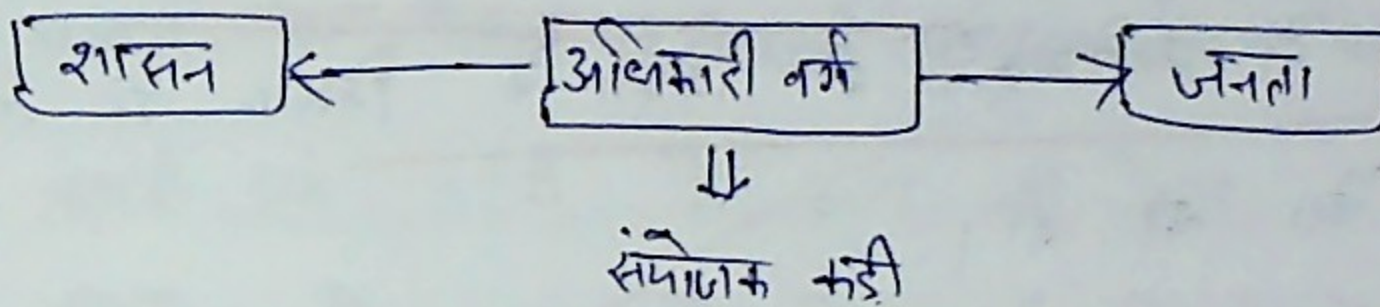 शासन अधिकारी वर्ग जनता
संयोजक कड़ी